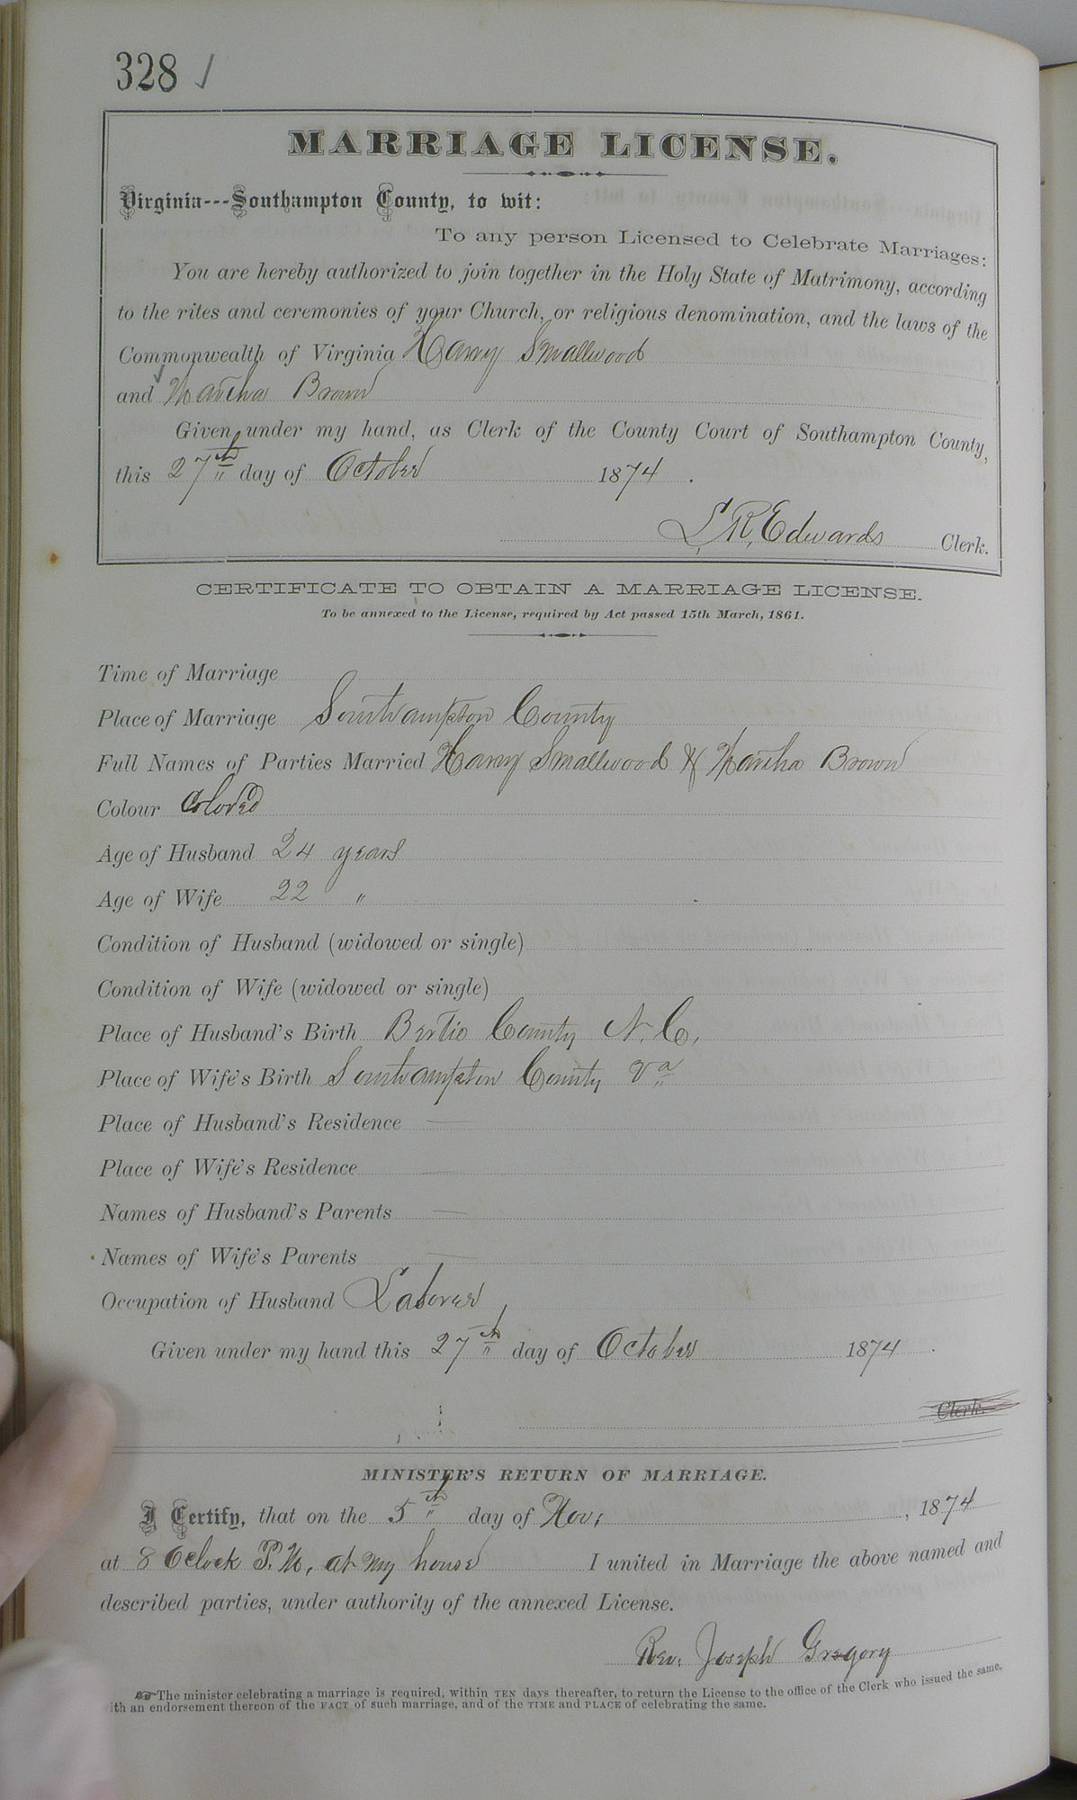 328 ✓
MARRIAGE LICENSE.
Virginia---Southampton County, to wit:
To any person Licensed to Celebrate Marriages:
You are hereby authorized to join together in the Holy State of Matrimony, according
to the rites and ceremonies of your Church, or religious denomination, and the laws of the
Commonwealth of Virginia Harry Smallwood
and Martha Brown
Given under my hand, as Clerk of the County Court of Southampton County,
this 27th day of October 1874.
L. R. Edwards Clerk.
CERTIFICATE TO OBTAIN A MARRIAGE LICENSE.
To be annexed to the License, required by Act passed 15th March, 1861.
Time of Marriage
Place of Marriage Southampton County
Full Names of Parties Married Harry Smallwood & Martha Brown
Colour Colored
Age of Husband 24 years
Age of Wife 22 "
Condition of Husband (widowed or single)
Condition of Wife (widowed or single)
Place of Husband's Birth Bertie County N. C.
Place of Wife's Birth Southampton County Va
Place of Husband's Residence —
Place of Wife's Residence —
Names of Husband's Parents —
Names of Wife's Parents —
Occupation of Husband Laborer
Given under my hand this 27th day of October 1874.
Clerk.
MINISTER'S RETURN OF MARRIAGE.
I Certify, that on the 5th day of Nov, , 1874
at 8 Oclock P. M, at my house I united in Marriage the above named and
described parties, under authority of the annexed License.
Rev. Joseph Gregory
☞The minister celebrating a marriage is required, within TEN days thereafter, to return the License to the office of the Clerk who issued the same,
with an endorsement thereon of the FACT of such marriage, and of the TIME and PLACE of celebrating the same.